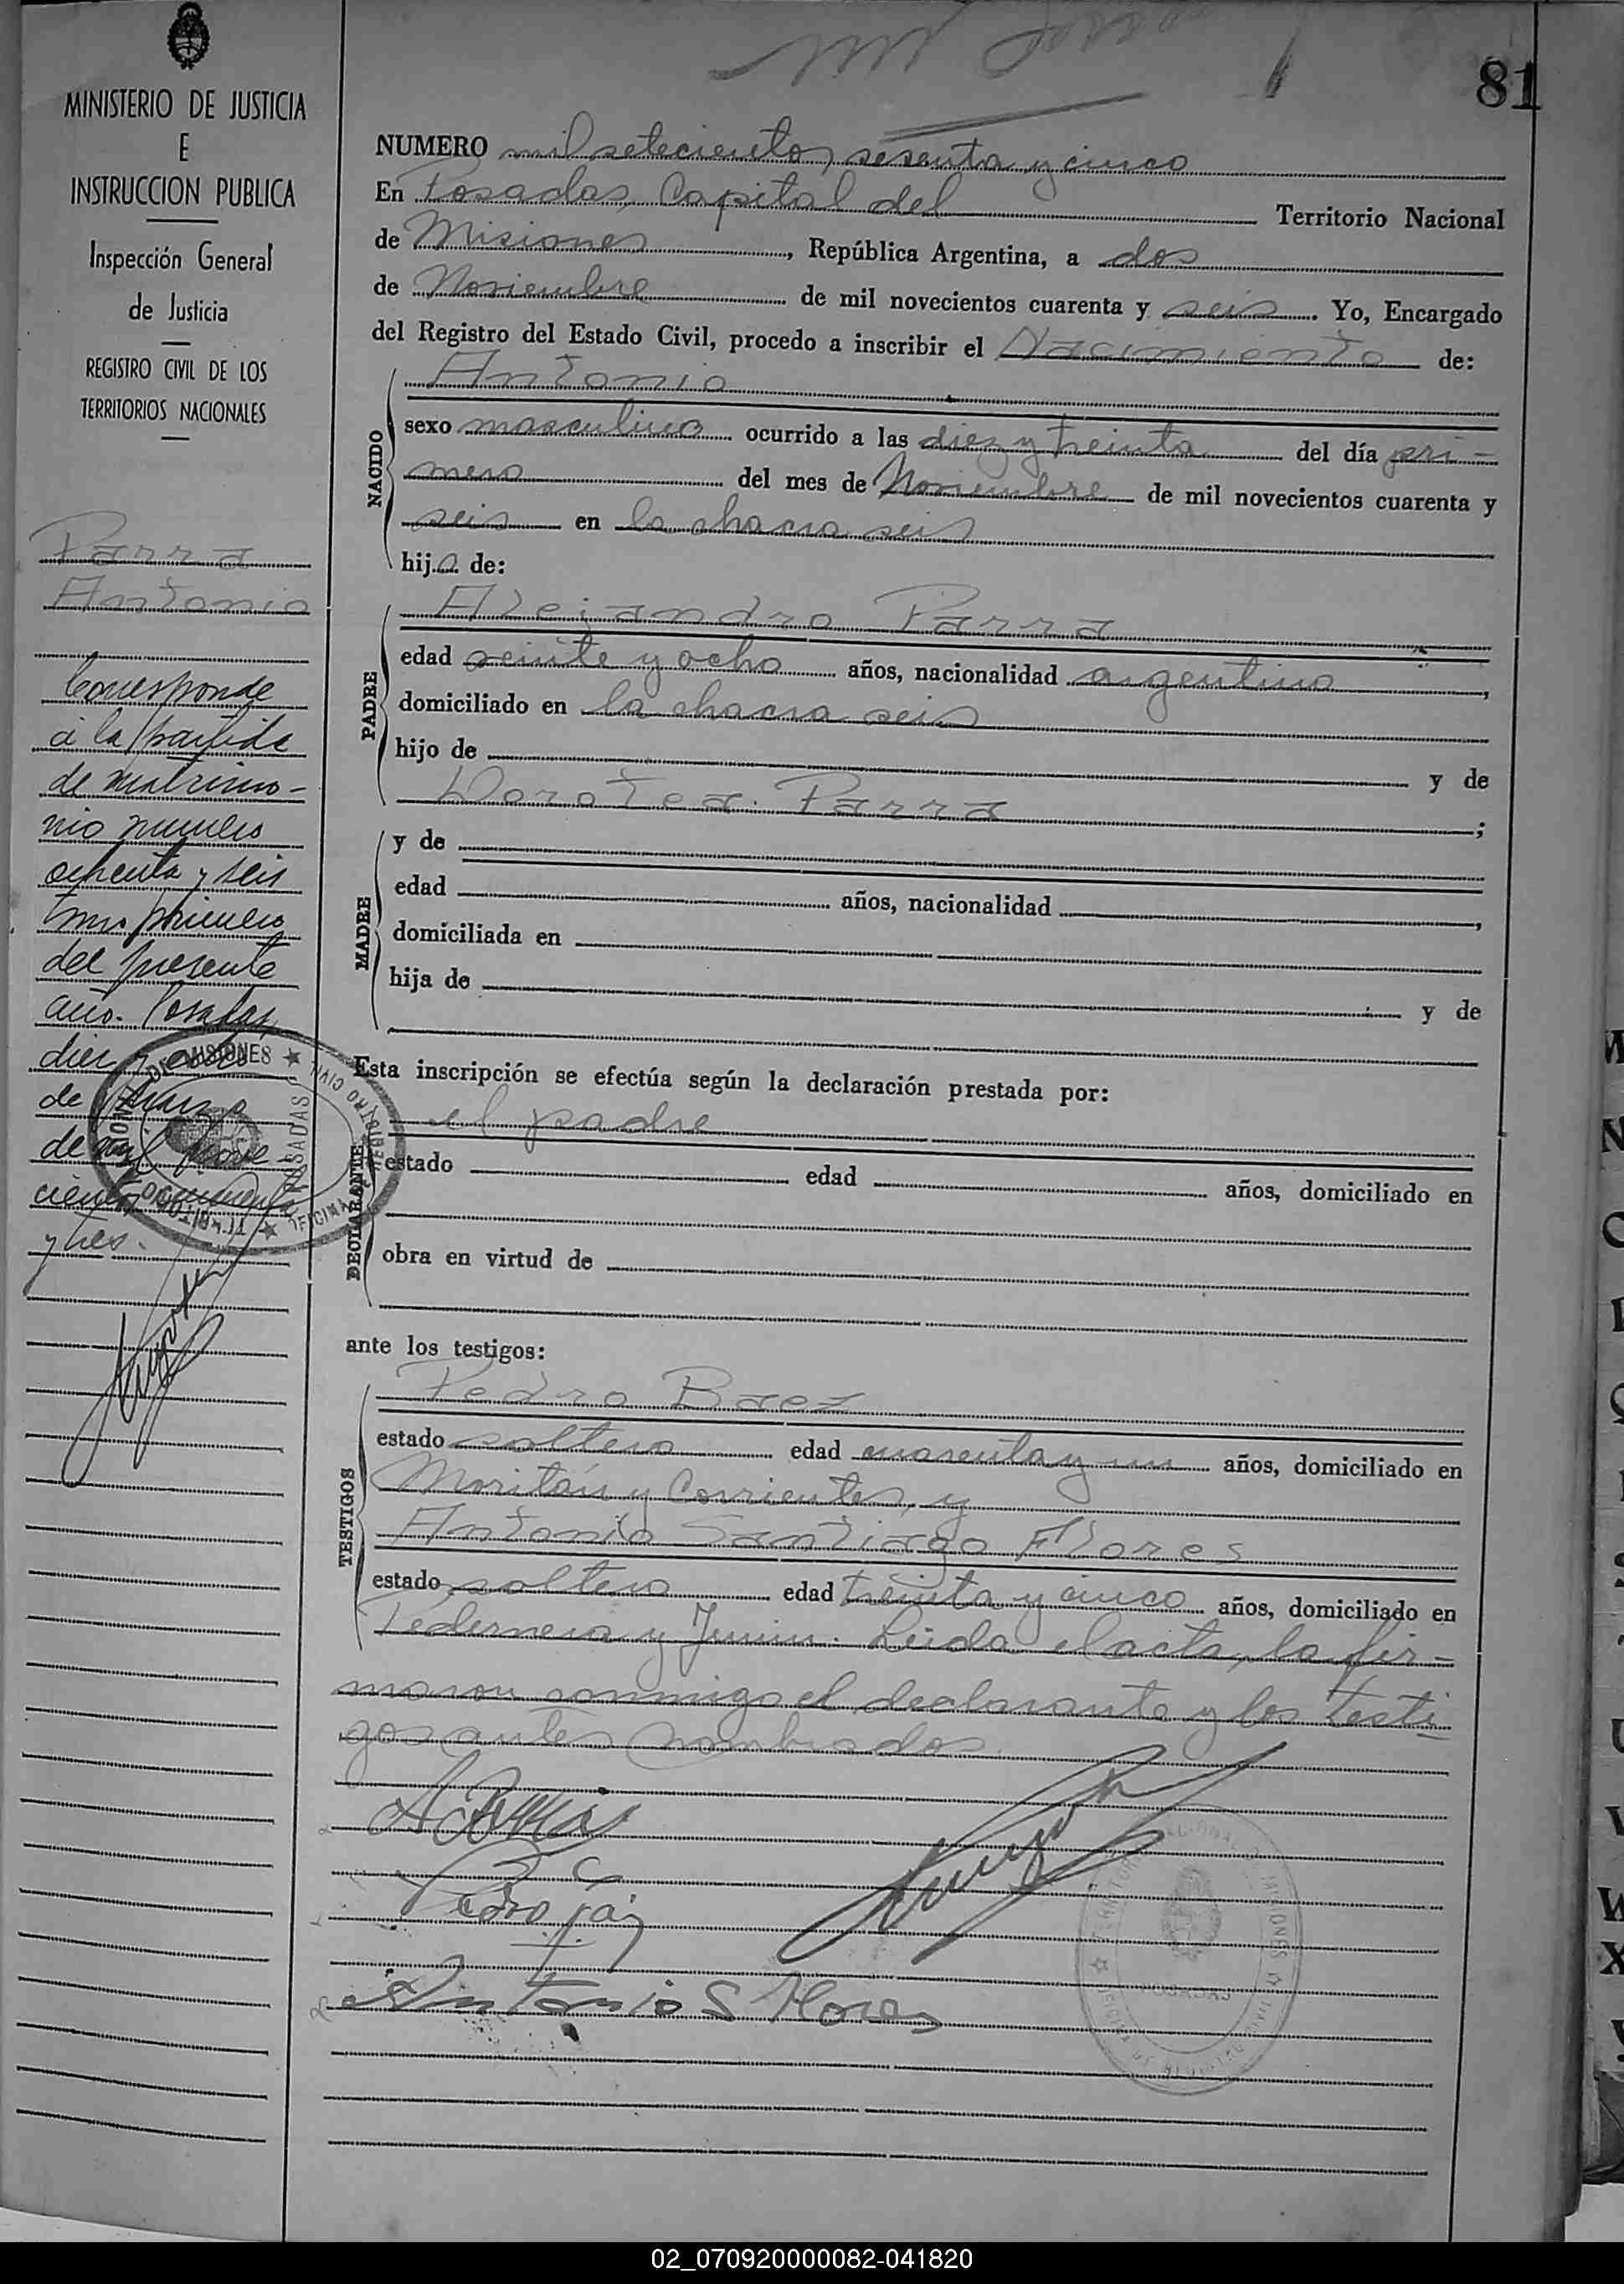 81
MINISTERIO DE JUSTICIA
E
INSTRUCCION PUBLICA
Inspección General
de Justicia
REGISTRO CIVIL DE LOS
TERRITORIOS NACIONALES
Parra
Antonio
Corresponde
a la partida
de matrimo-
nio numero
ochenta y seis
tomo primero
del presente
año. Posadas
diez y ocho
de
de mil nove-
cientos cincuenta
y tres.
NUMERO mil setecientos sesenta y cinco
En Posadas, Capital del Territorio Nacional
de Misiones, República Argentina, a dos
de Noviembre de mil novecientos cuarenta y seis. Yo, Encargado
del Registro del Estado Civil, procedo a inscribir el Nacimiento de:
NACIDO
Antonio
sexo masculino ocurrido a las diez y treinta del día pri-
mero del mes de Noviembre de mil novecientos cuarenta y
seis en la chacra seis
hijo de:
PADRE
Alejandro Parra
edad veinte y ocho años, nacionalidad argentino,
domiciliado en la chacra seis
hijo de y de
Dorotea Parra;
MADRE
y de
edad años, nacionalidad ,
domiciliada en
hija de y de
Esta inscripción se efectúa según la declaración prestada por:
DECLARANTE
el padre
estado edad años, domiciliado en
obra en virtud de
ante los testigos:
TESTIGOS
Pedro Baez
estado soltero edad cuarenta y un años, domiciliado en
Moritán y Corrientes, y
Antonio Santiago Flores
estado soltero edad treinta y cinco años, domiciliado en
Pedernera y Junin. Leida el acta, la fir-
maron conmigo el declarante y los testi-
gos antes nombrados.
Antonio S Flores
MISIONES ★ REGISTRO CIVIL
POSADAS
02_070920000082-041820